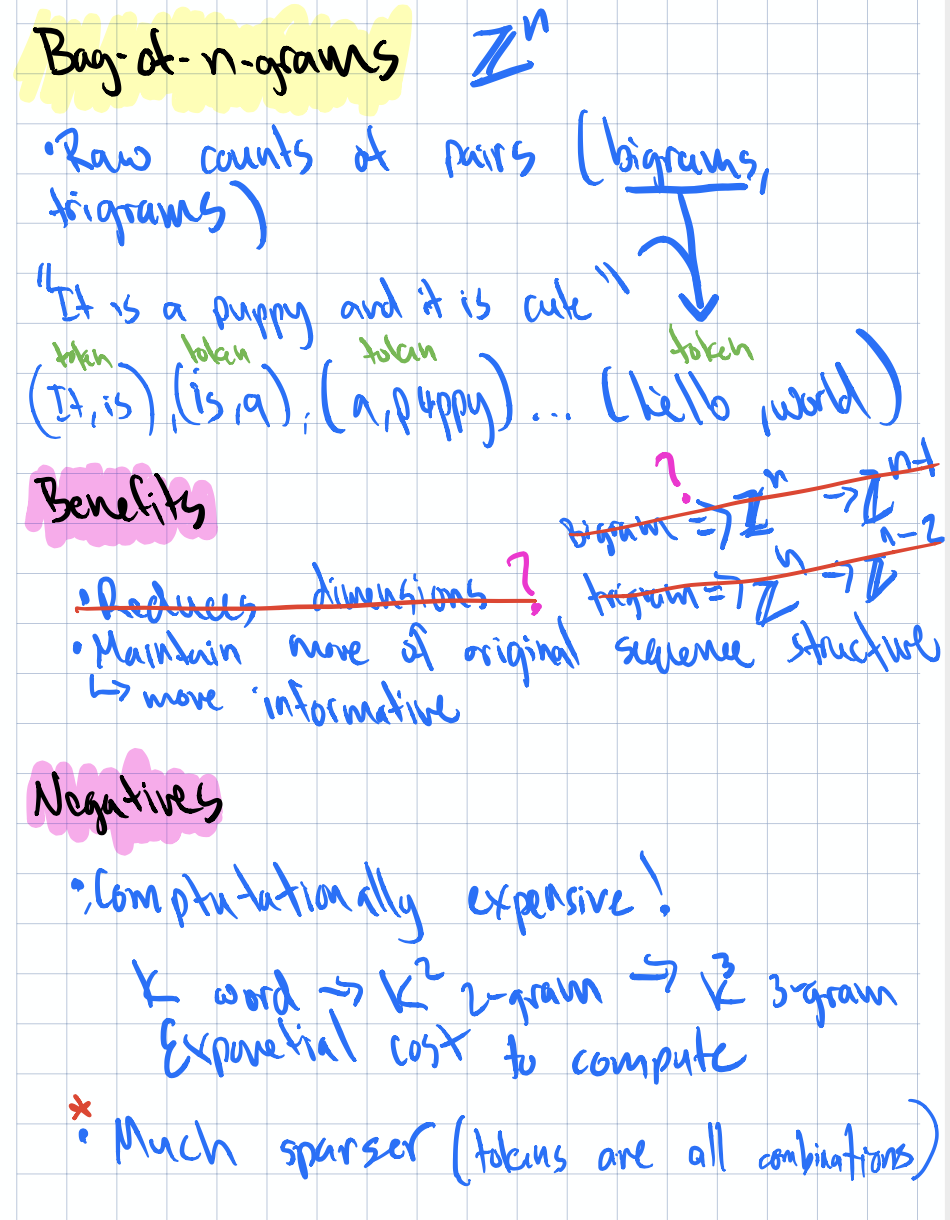 Bag-of-n-grams ℤⁿ
• Raw counts of pairs (bigrams,
trigrams)
"It is a puppy and it is cute"
token token token token
(It, is), (is, a), (a, puppy) ... (hello, world)
Benefits
?
Bigram => ℤⁿ → ℤⁿ⁻¹
• Reduces dimensions ? trigram => ℤⁿ → ℤⁿ⁻²
• Maintain more of original sequence structure
↳ more informative
Negatives
• Comptutationally expensive!
K word → K² 2-gram → K³ 3-gram
Exponetial cost to compute
*
• Much sparser (tokens are all combinations)